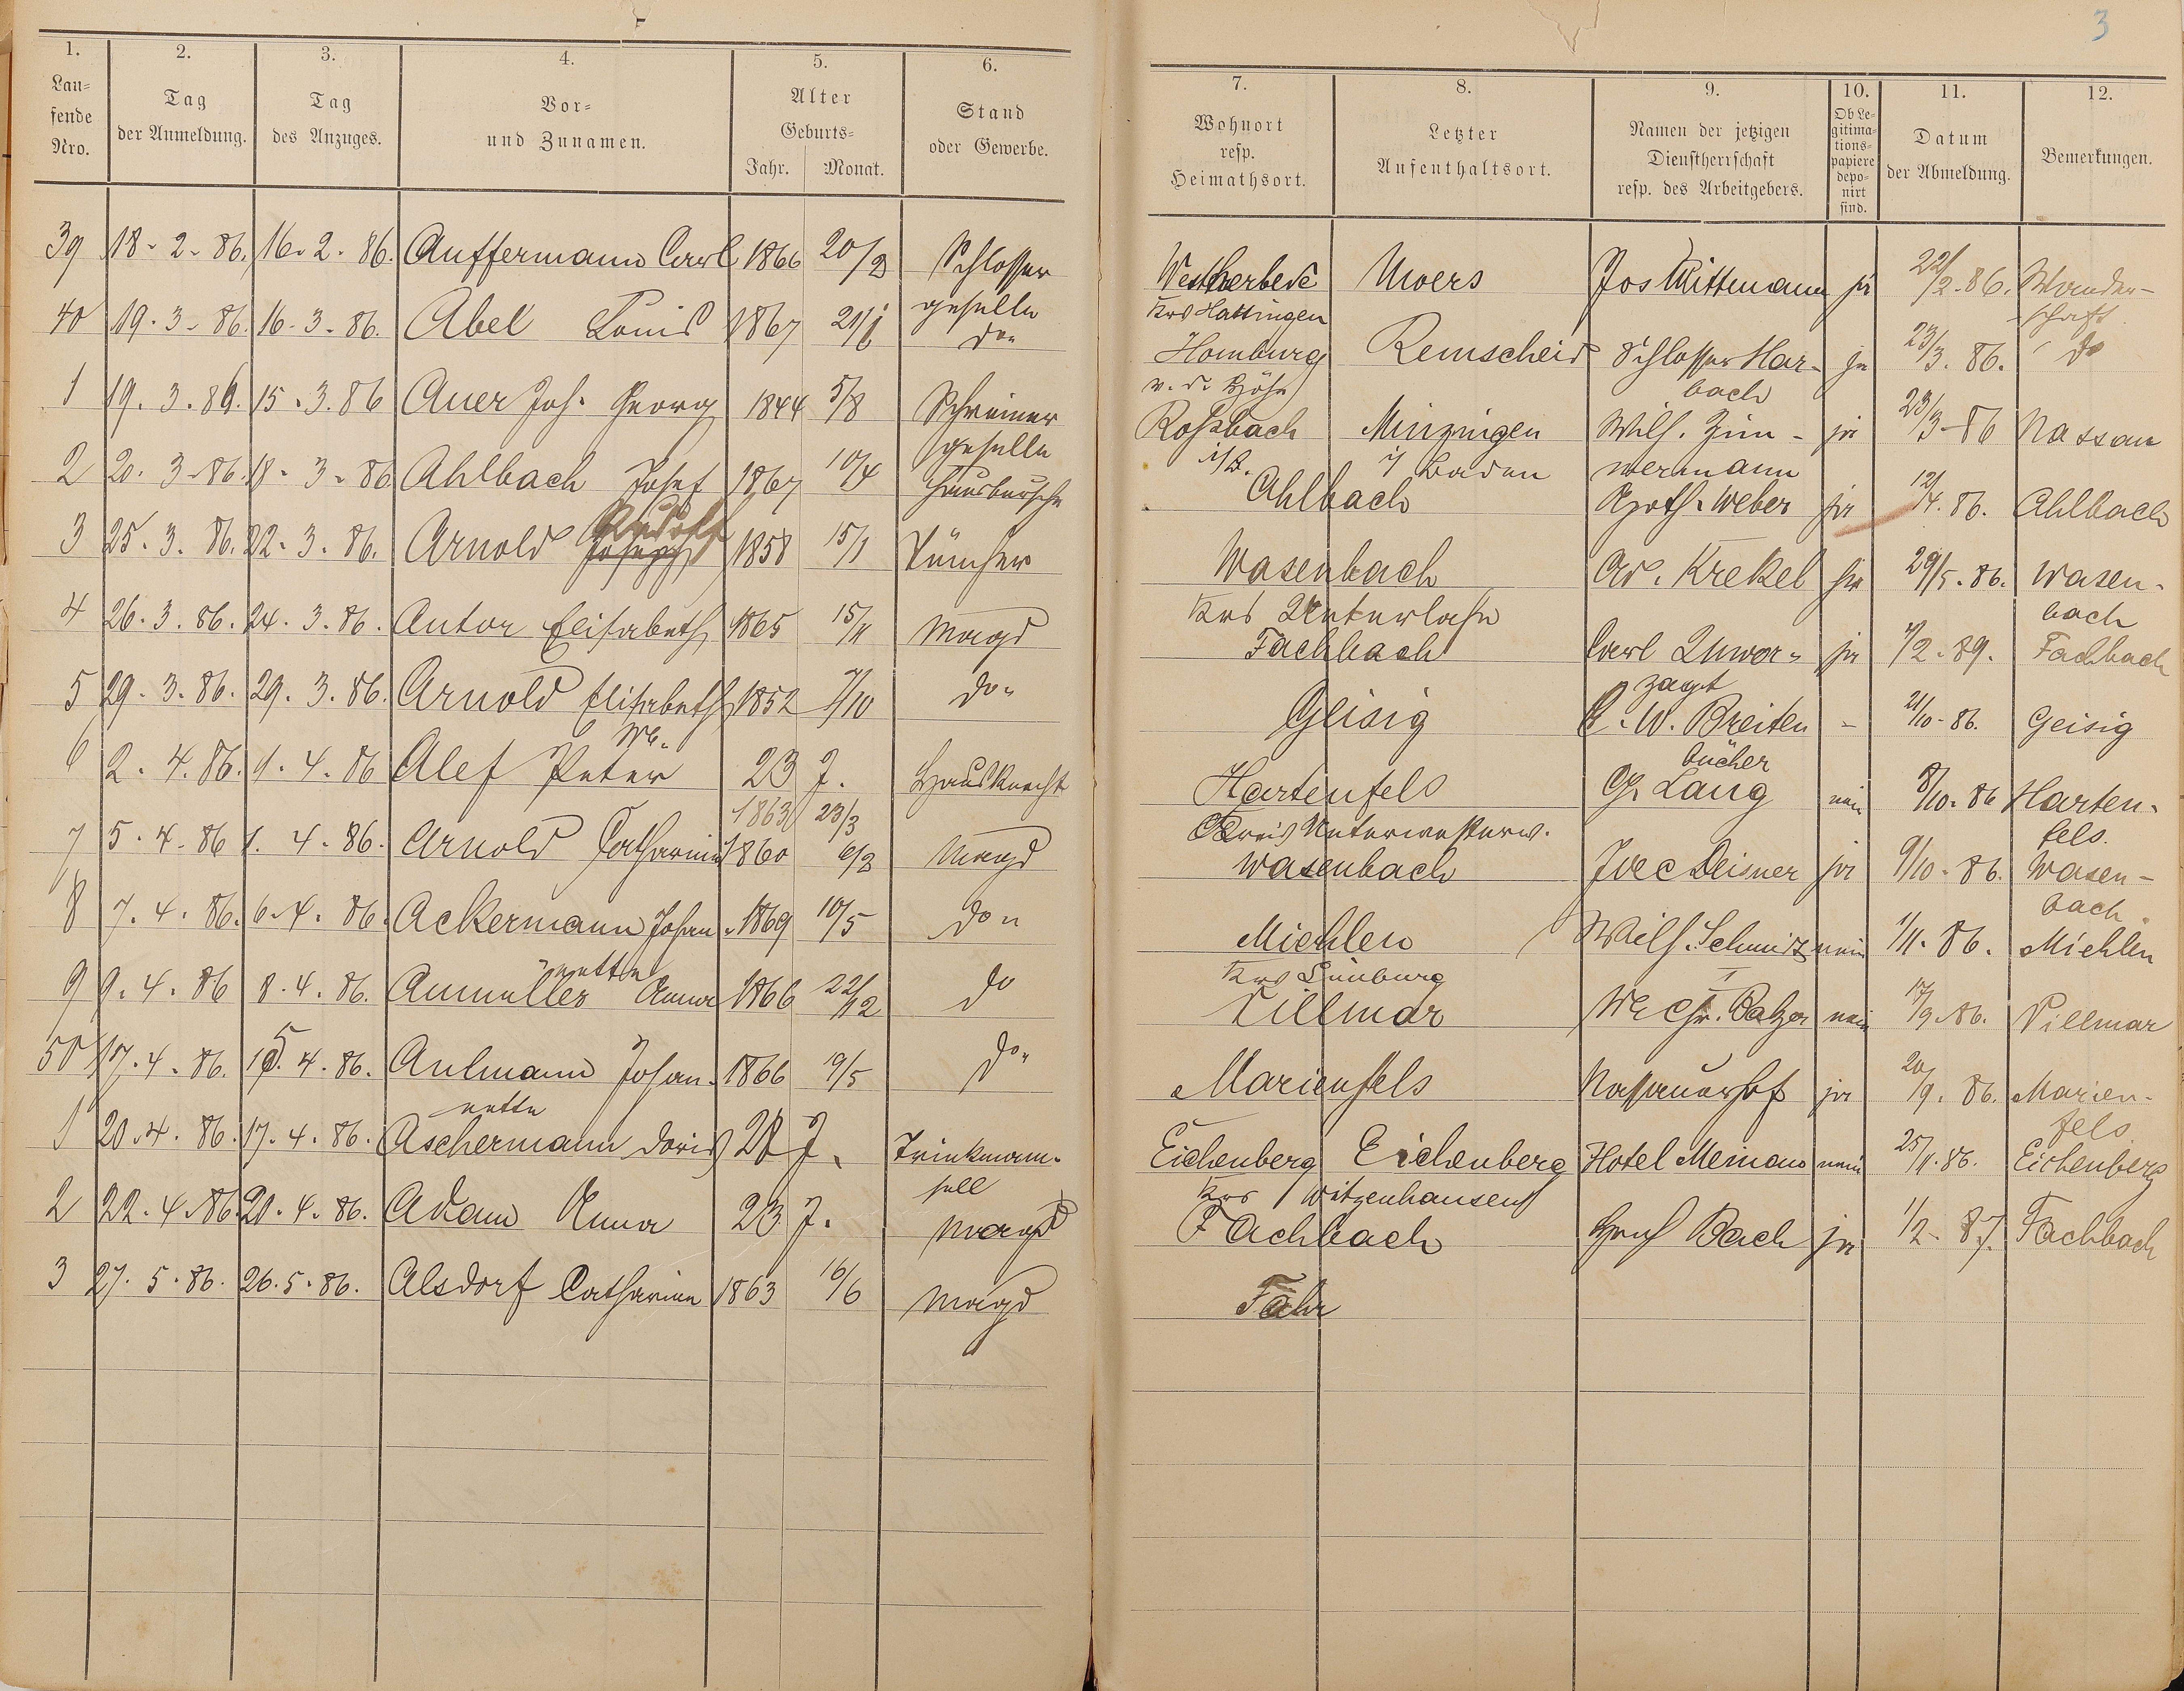 3
1. 2. 3. 4. 5. 6.
Lau=
fende
Nro.
Tag
der Anmeldung.
Tag
des Anzuges.
Vor=
und Zunamen.
Alter
Geburts=
Jahr. Monat.
Stand
oder Gewerbe.
7. 8. 9. 10. 11. 12.
Wohnort
resp.
Heimathsort.
Letzter
Aufenthaltsort.
Namen der jetzigen
Dienstherrschaft
resp. des Arbeitgebers.
Ob Le=
gitima=
tions=
papiere
depo=
nirt
sind.
Datum
der Abmeldung.
Bemerkungen.
39 18. 2. 86. 16. 2. 86. Auffermann Carl 1866 20/2 Schlosser
geselle
40 19. 3. 86. 16. 3. 86. Abel Louis 1867 21/6 do
1 19. 3. 86. 15. 3. 86 Auer Joh. Georg 1844 5/8 Schreiner
geselle
2 20. 3. 86. 18. 3. 86 Ahlbach Josef 1867 10/4 Hausbursche
Rudolf
3 25. 3. 86. 22. 3. 86. Arnold Joseph 1858 15/1 Tüncher
4 26. 3. 86. 24. 3. 86. Antor Elisabeth 1865 15/11 Magd
5 29. 3. 86. 29. 3. 86. Arnold Elisabeth 1852 7/10 do
We.
6 2. 4. 86. 1. 4. 86 Alef Peter 23 J. Hausknecht
1863 23/3
7 5. 4. 86 1. 4. 86. Arnold Catharina 1860 6/2 Magd
8 7. 4. 86. 6. 4. 86. Ackermann Johan- 1869 10/5 do
nette
9 9. 4. 86 8. 4. 86. Aumüller Anna 1866 22/12 do
50 17. 4. 86. 15. 4. 86. Aulmann Johan- 1866 19/5 do
nette
1 20. 4. 86. 17. 4. 86. Aschermann Doris 28 J. Trinkmam-
sell
2 22. 4. 86. 21. 4. 86. Adam Anna 23 J. Magd
3 27. 5. 86. 26. 5. 86. Alsdorf Catharina 1863 16/6 Magd
Westherbede Moers Jos Wittmann ja 22/2. 86. Wander-
Krs Hattingen schaft
Homburg Remscheid Schlosser Har- ja 23/3. 86. do
v. d. Höhe bach
Roßbach Minzingen Wilh. Zim- ja 23/3 86 Nassau
i/B. i/ Baden mermann
Ahlbach Apoth. Weber ja 12/4. 86. Ahlbach
Wasenbach Ad. Krekel ja 29/5. 86. Wasen-
Krs Unterlahn bach
Fachbach Carl Unver- ja 2. 89. Fachbach
zagt
Geisig C. W. Breiten - 21/10. 86. Geisig
bücher
Hartenfels G. Lang nein 8/10. 86 Harten-
Kreis Unterwesterw. fels.
Wasenbach Deisner ja 9/10. 86. Wasen-
bach.
Miehlen Wilh. Schmitz nein 1/11. 86. Miehlen
Krs Limburg
Villmar We Chr. Balzer nein 17/9. 86. Villmar
Marienfels Nassauerhof ja 20/9. 86. Marien-
fels
Eichenberg Eichenberg Hotel nein 25/11. 86. Eichenberg
Krs Witzenhausen
Fachbach Bach ja 1/2. 87. Fachbach
Fahr